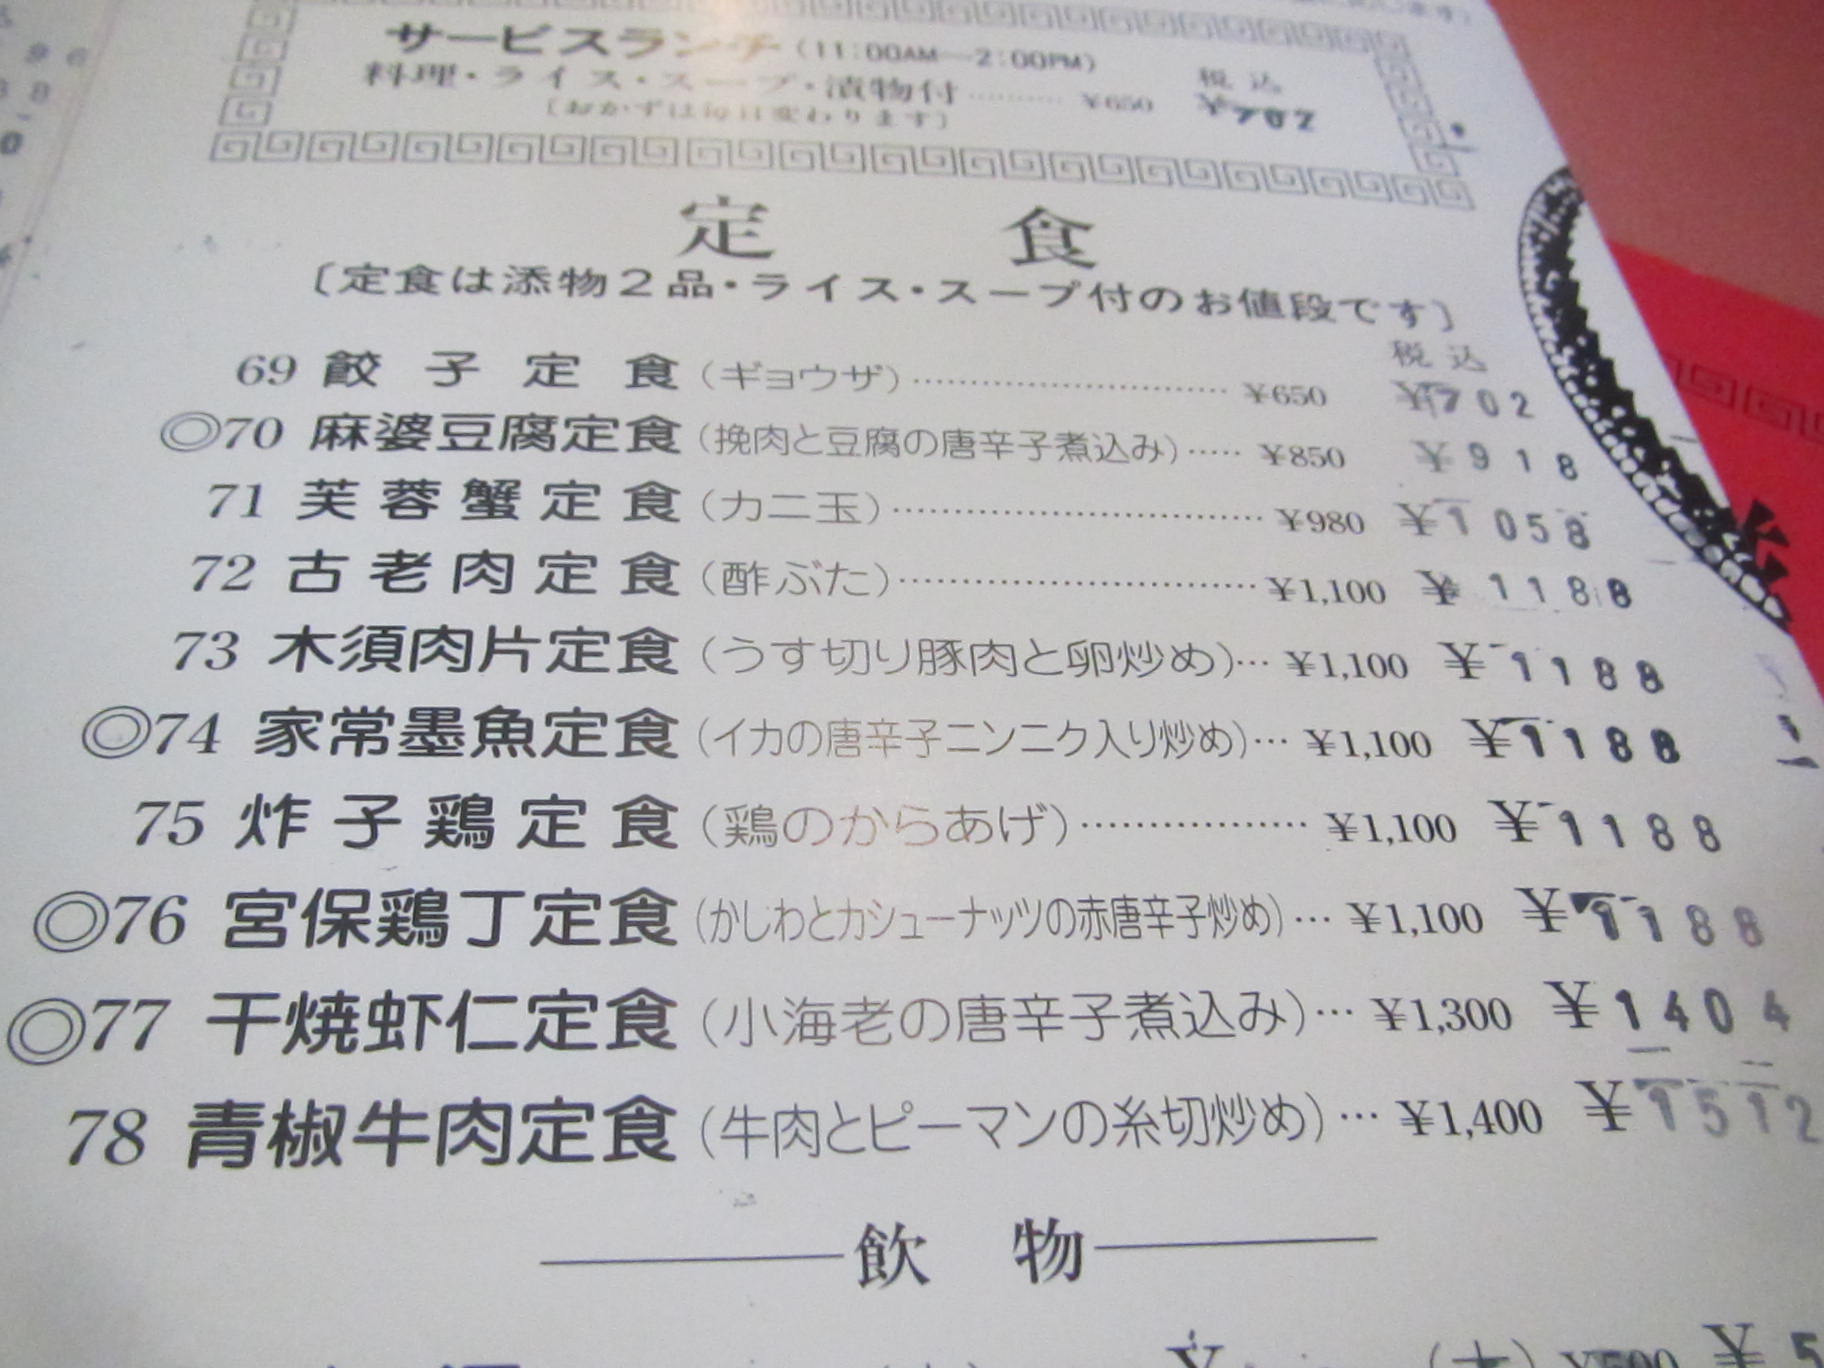 サービスランチ(11:00AM—2:00PM)
料理・ライス・スープ・漬物付………… ¥650 税込 ¥702
〔おかずは毎日変わります〕
定食
〔定食は添物2品・ライス・スープ付のお値段です〕
税込
69 餃子定食(ギョウザ)………………………… ¥650 ¥702
◎70 麻婆豆腐定食(挽肉と豆腐の唐辛子煮込み)…… ¥850 ¥918
71 芙蓉蟹定食(カニ玉)………………………… ¥980 ¥1058
72 古老肉定食(酢ぶた)………………………… ¥1,100 ¥1188
73 木須肉片定食(うす切り豚肉と卵炒め)… ¥1,100 ¥1188
◎74 家常墨魚定食(イカの唐辛子ニンニク入り炒め)… ¥1,100 ¥1188
75 炸子鶏定食(鶏のからあげ)……………… ¥1,100 ¥1188
◎76 宮保鶏丁定食(かしわとカシューナッツの赤唐辛子炒め)… ¥1,100 ¥1188
◎77 干焼虾仁定食(小海老の唐辛子煮込み)… ¥1,300 ¥1404
78 青椒牛肉定食(牛肉とピーマンの糸切炒め)… ¥1,400 ¥1512
飲物